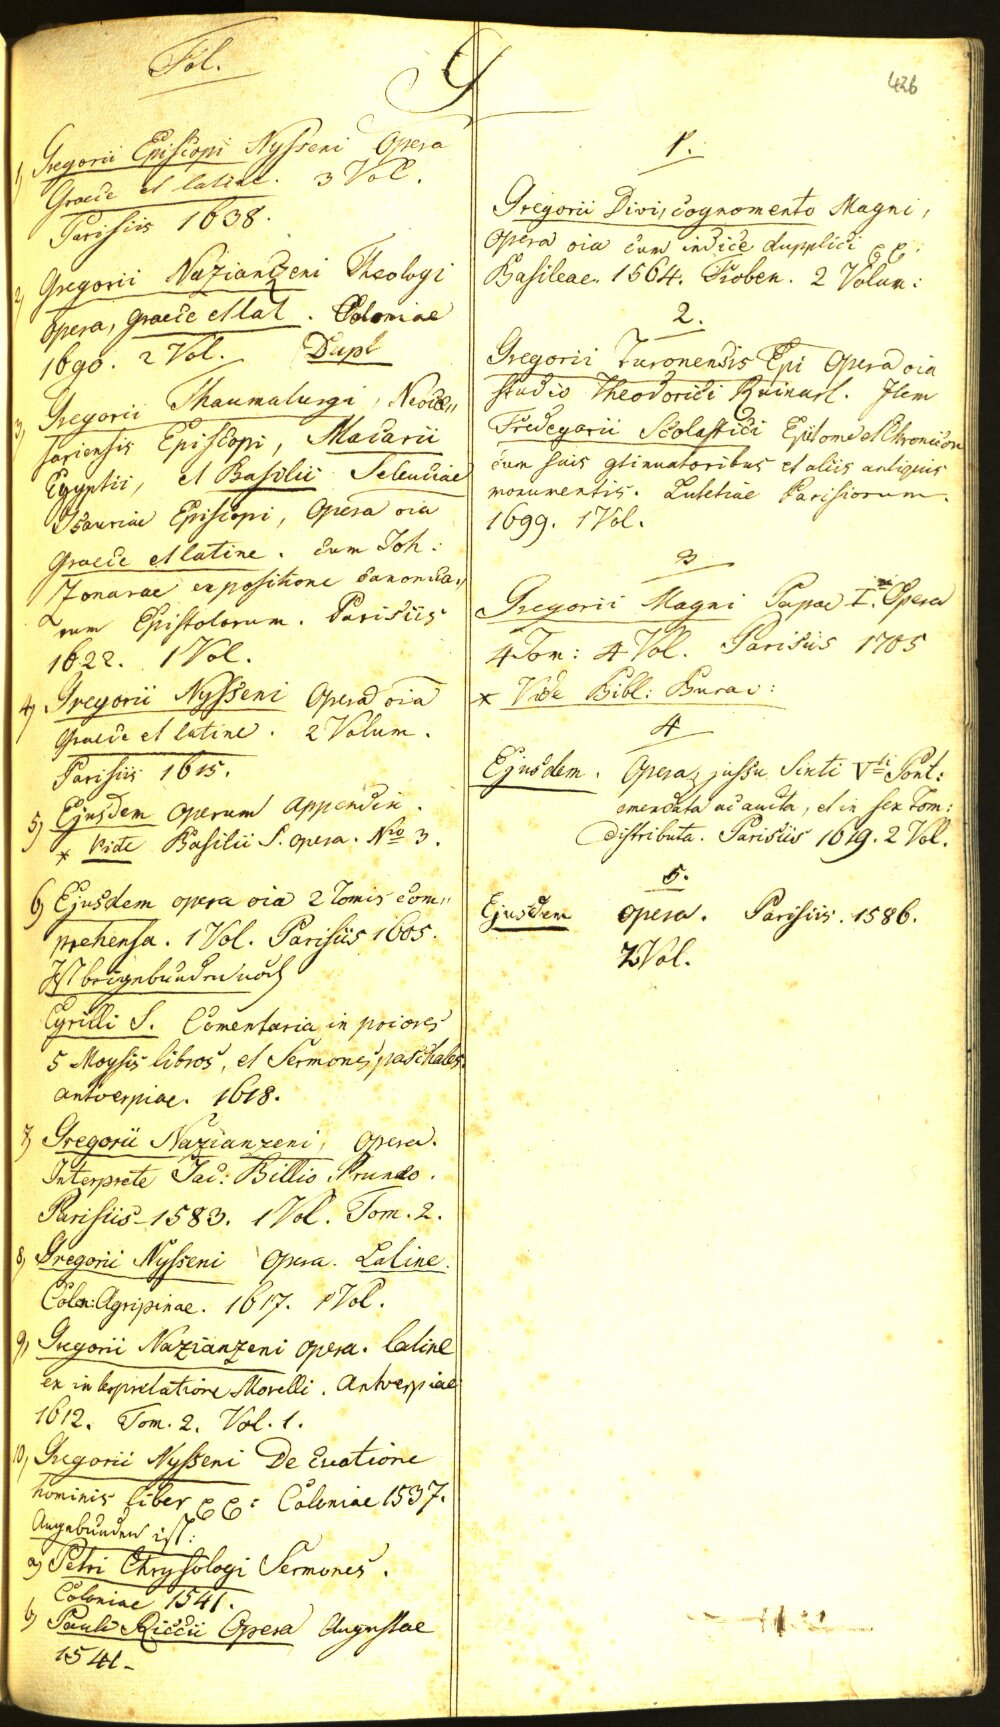 Fol.
G
426
1) Gregorii Episcopi Nysseni Opera
Graece et latine. 3 Vol.
Parisiis 1638.
2) Gregorii Nazianzeni Theologi
opera, graece et lat. Coloniae
1690. 2 Vol. Dupl
3) Gregorii Thaumaturgi, Neocae„
sariensis Episcopi, Macarii
Egyptii, et Basilii Seleuciae
Isauriae Episcopi, Opera oia
graece et latine. cum Joh:
Zonarae expositione canonica„
rum Epistolarum. Parisiis
1622. 1 Vol.
4) Gregorii Nysseni Opera oia
Graece et latine. 2 Volum.
Parisiis 1615.
5) Ejusdem operum appendix.
* vide Basilii S. opera. Nro 3.
6) Ejusdem opera oia 2 Tomis com„
prehensa. 1 Vol. Parisiis 1605.
Ist beigebunden noch
Cyrilli S. Comentaria in poiores
5 Moysis libros, et Sermones paschales.
antverpiae. 1618.
7) Gregorii Nazianzeni, opera.
Interprete Jac: Billio Prunaeo.
Parisiis 1583. 1 Vol. Tom. 2.
8) Gregorii Nysseni Opera. Latine.
Colon: Agripinae. 1617. 1 Vol.
9) Gregorii Nazianzeni opera. latine
ex interpretatione Morelli. Antverpiae
1612. Tom. 2. Vol. 1.
10) Gregorii Nysseni De Creatione
hominis liber Coloniae 1537.
Angebunden ist:
a) Petri Chrysologi Sermones.
Coloniae 1541.
b) Pauli Riccii Opera Augustae
1541-
1.
Gregorii Divi, cognomento Magni,
Opera oia cum indice dupplici
Basileae. 1564. Froben. 2 Volum:
2.
Gregorii Turonensis Epi Opera oia
studio Theodorici Ruinart. Item
Fredegarii Scolastici Epitome et Chronicon
cum suis gtinuatoribus et aliis antiquis
monumentis. Lutetiae Parisiorum.
1699. 1 Vol.
3
Gregorii Magni Papae I.mi Opera
4 Tom: 4 Vol. Parisiis 1705
* Vide Bibl: Burav:
4
Ejusdem. Opera, jussu Sixti Vti Pont:
emendata ac aucta, et in sex Tom:
distributa. Parisiis 1619. 2 Vol.
5.
Ejusdem opera. Parisiis. 1586.
2 Vol.